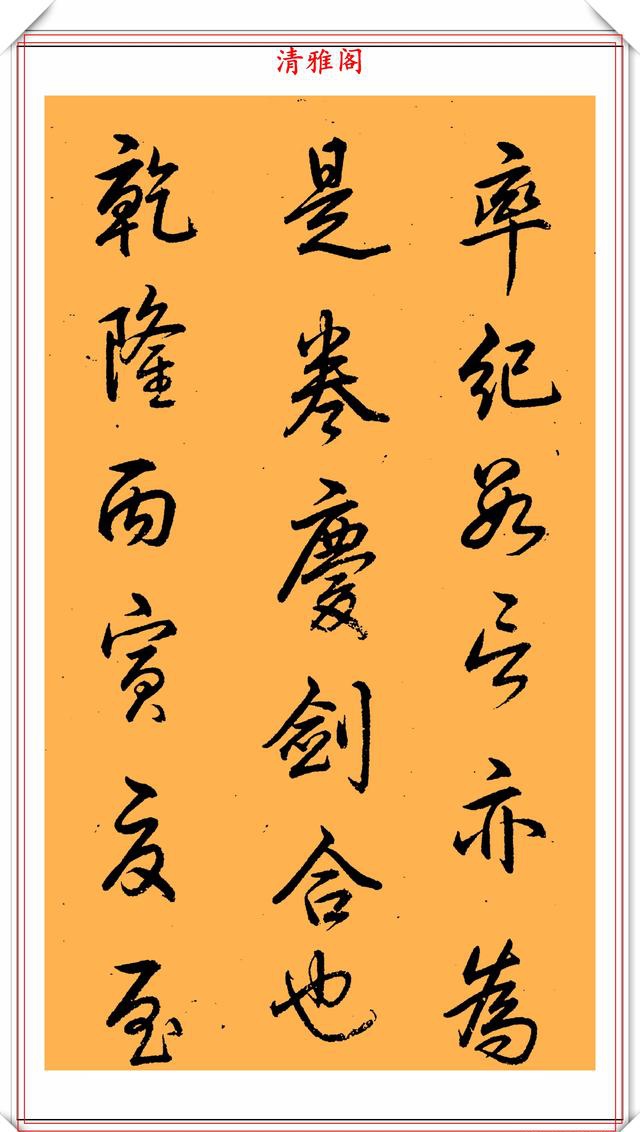 清雅阁
率紀數言亦為
是卷慶劍合也
乾隆丙寅夏至